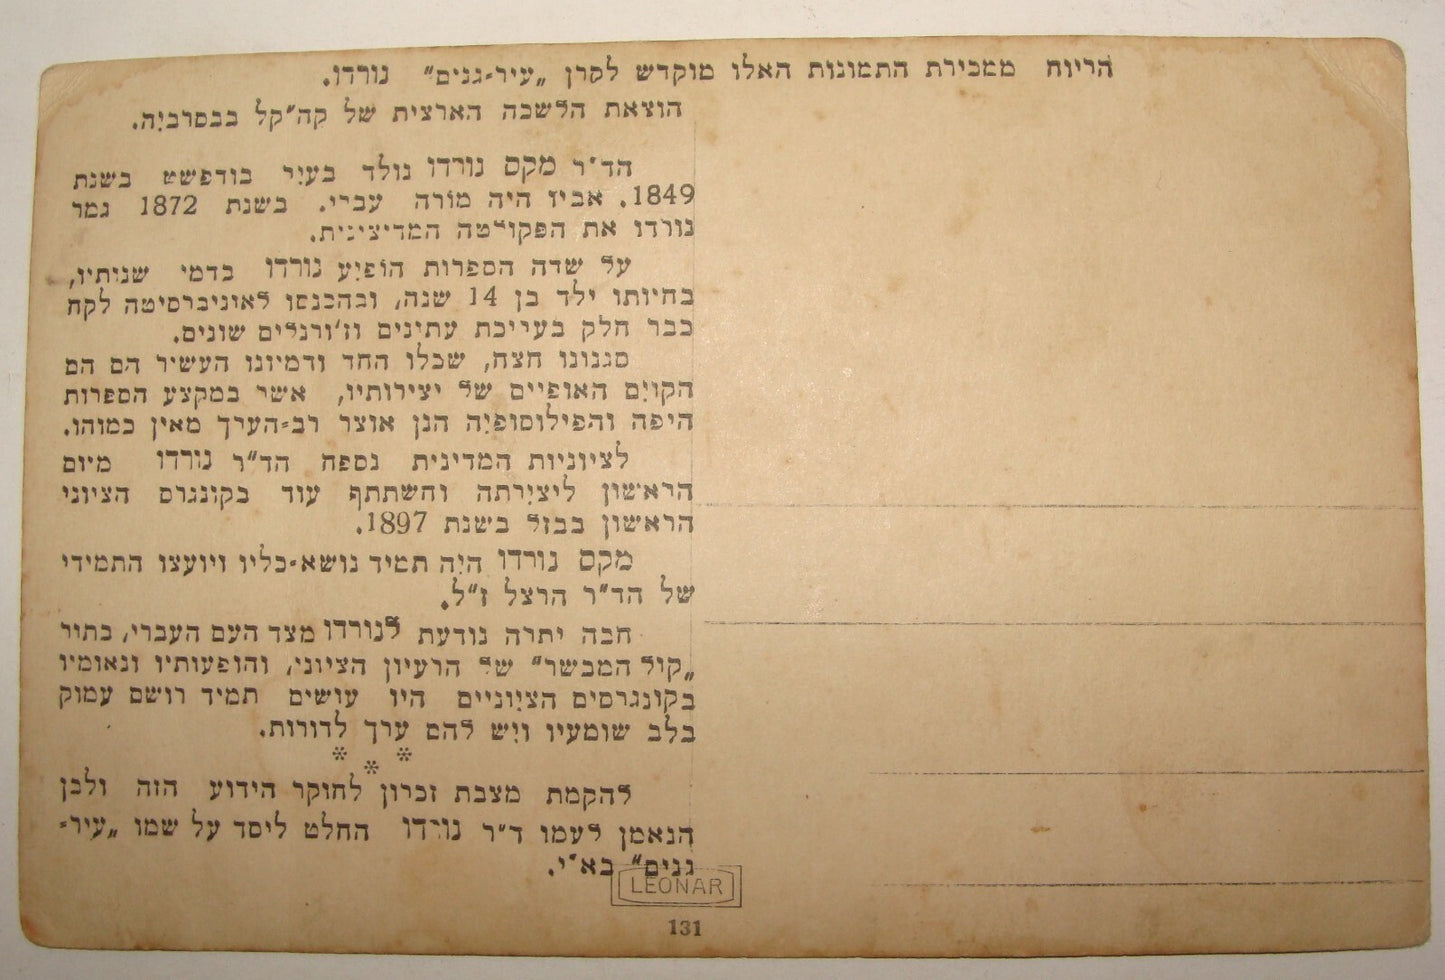 הריוח ממכירת התמונות האלו מוקדש לקרן „עיר-גנים” נורדו.
הוצאת הלשכה הארצית של קה״קל בבסרביה.
הד״ר מקס נורדו נולד בעיר בודפשט בשנת
1849. אביו היה מורה עברי. בשנת 1872 גמר
נורדו את הפקולטה המדיצינית.
על שדה הספרות הופיע נורדו בדמי שנותיו,
בהיותו ילד בן 14 שנה, ובהכנסו לאוניברסיטה לקח
כבר חלק בעריכת עתינים וז׳ורנלים שונים.
סגנונו הצח, שכלו החד ודמיונו העשיר הם הם
הקוים האופיים של יצירותיו, אשר במקצע הספרות
היפה והפילוסופיה הנן אוצר רב-הערך מאין כמוהו.
לציוניות המדינית נספח הד״ר נורדו מיום
הראשון ליצירתה והשתתף עוד בקונגרס הציוני
הראשון בבזל בשנת 1897.
מקס נורדו היה תמיד נושא-כליו ויועצו התמידי
של הד״ר הרצל ז״ל.
חבה יתרה נודעת לנורדו מצד העם העברי, בתור
„קול המבשר” של הרעיון הציוני, והופעותיו ונאומיו
בקונגרסים הציוניים היו עושים תמיד רושם עמוק
בלב שומעיו ויש להם ערך לדורות.
* * *
להקמת מצבת זכרון לחוקר הידוע הזה ולבן
הנאמן לעמו ד״ר נורדו החלט ליסד על שמו „עיר-
גנים” בא״י.
LEONAR
131